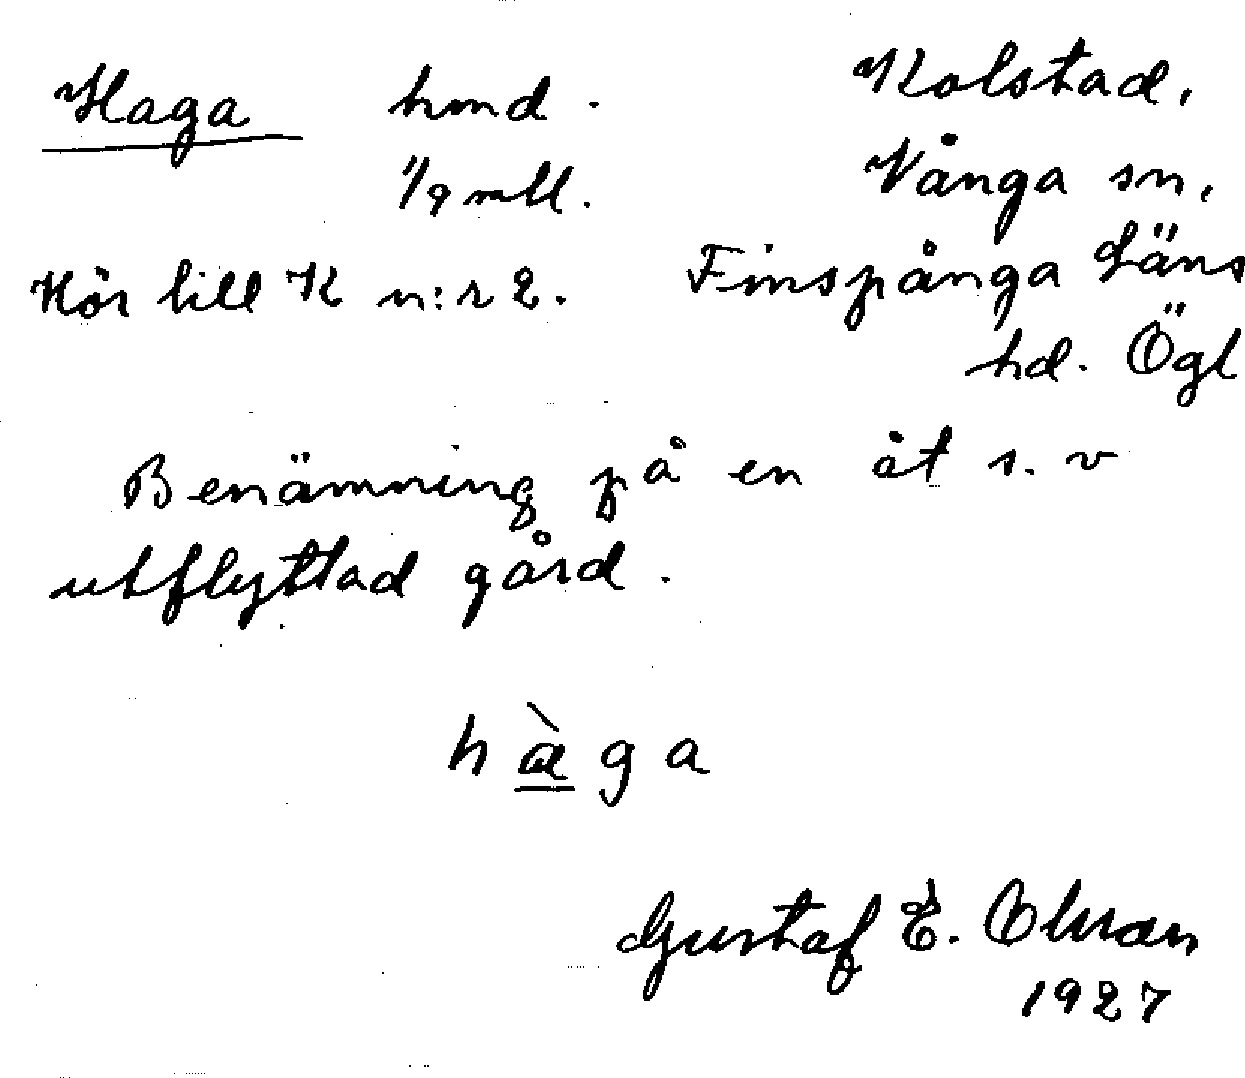 Haga hmd.
1/9 mtl.
Hör till K n:r 2.
Kolstad,
Vånga sn,
Finspånga Läns
hd. Ögl
Benämning på en åt s. v
utflyttad gård.
hàga
Gustaf E. Olsson
1927